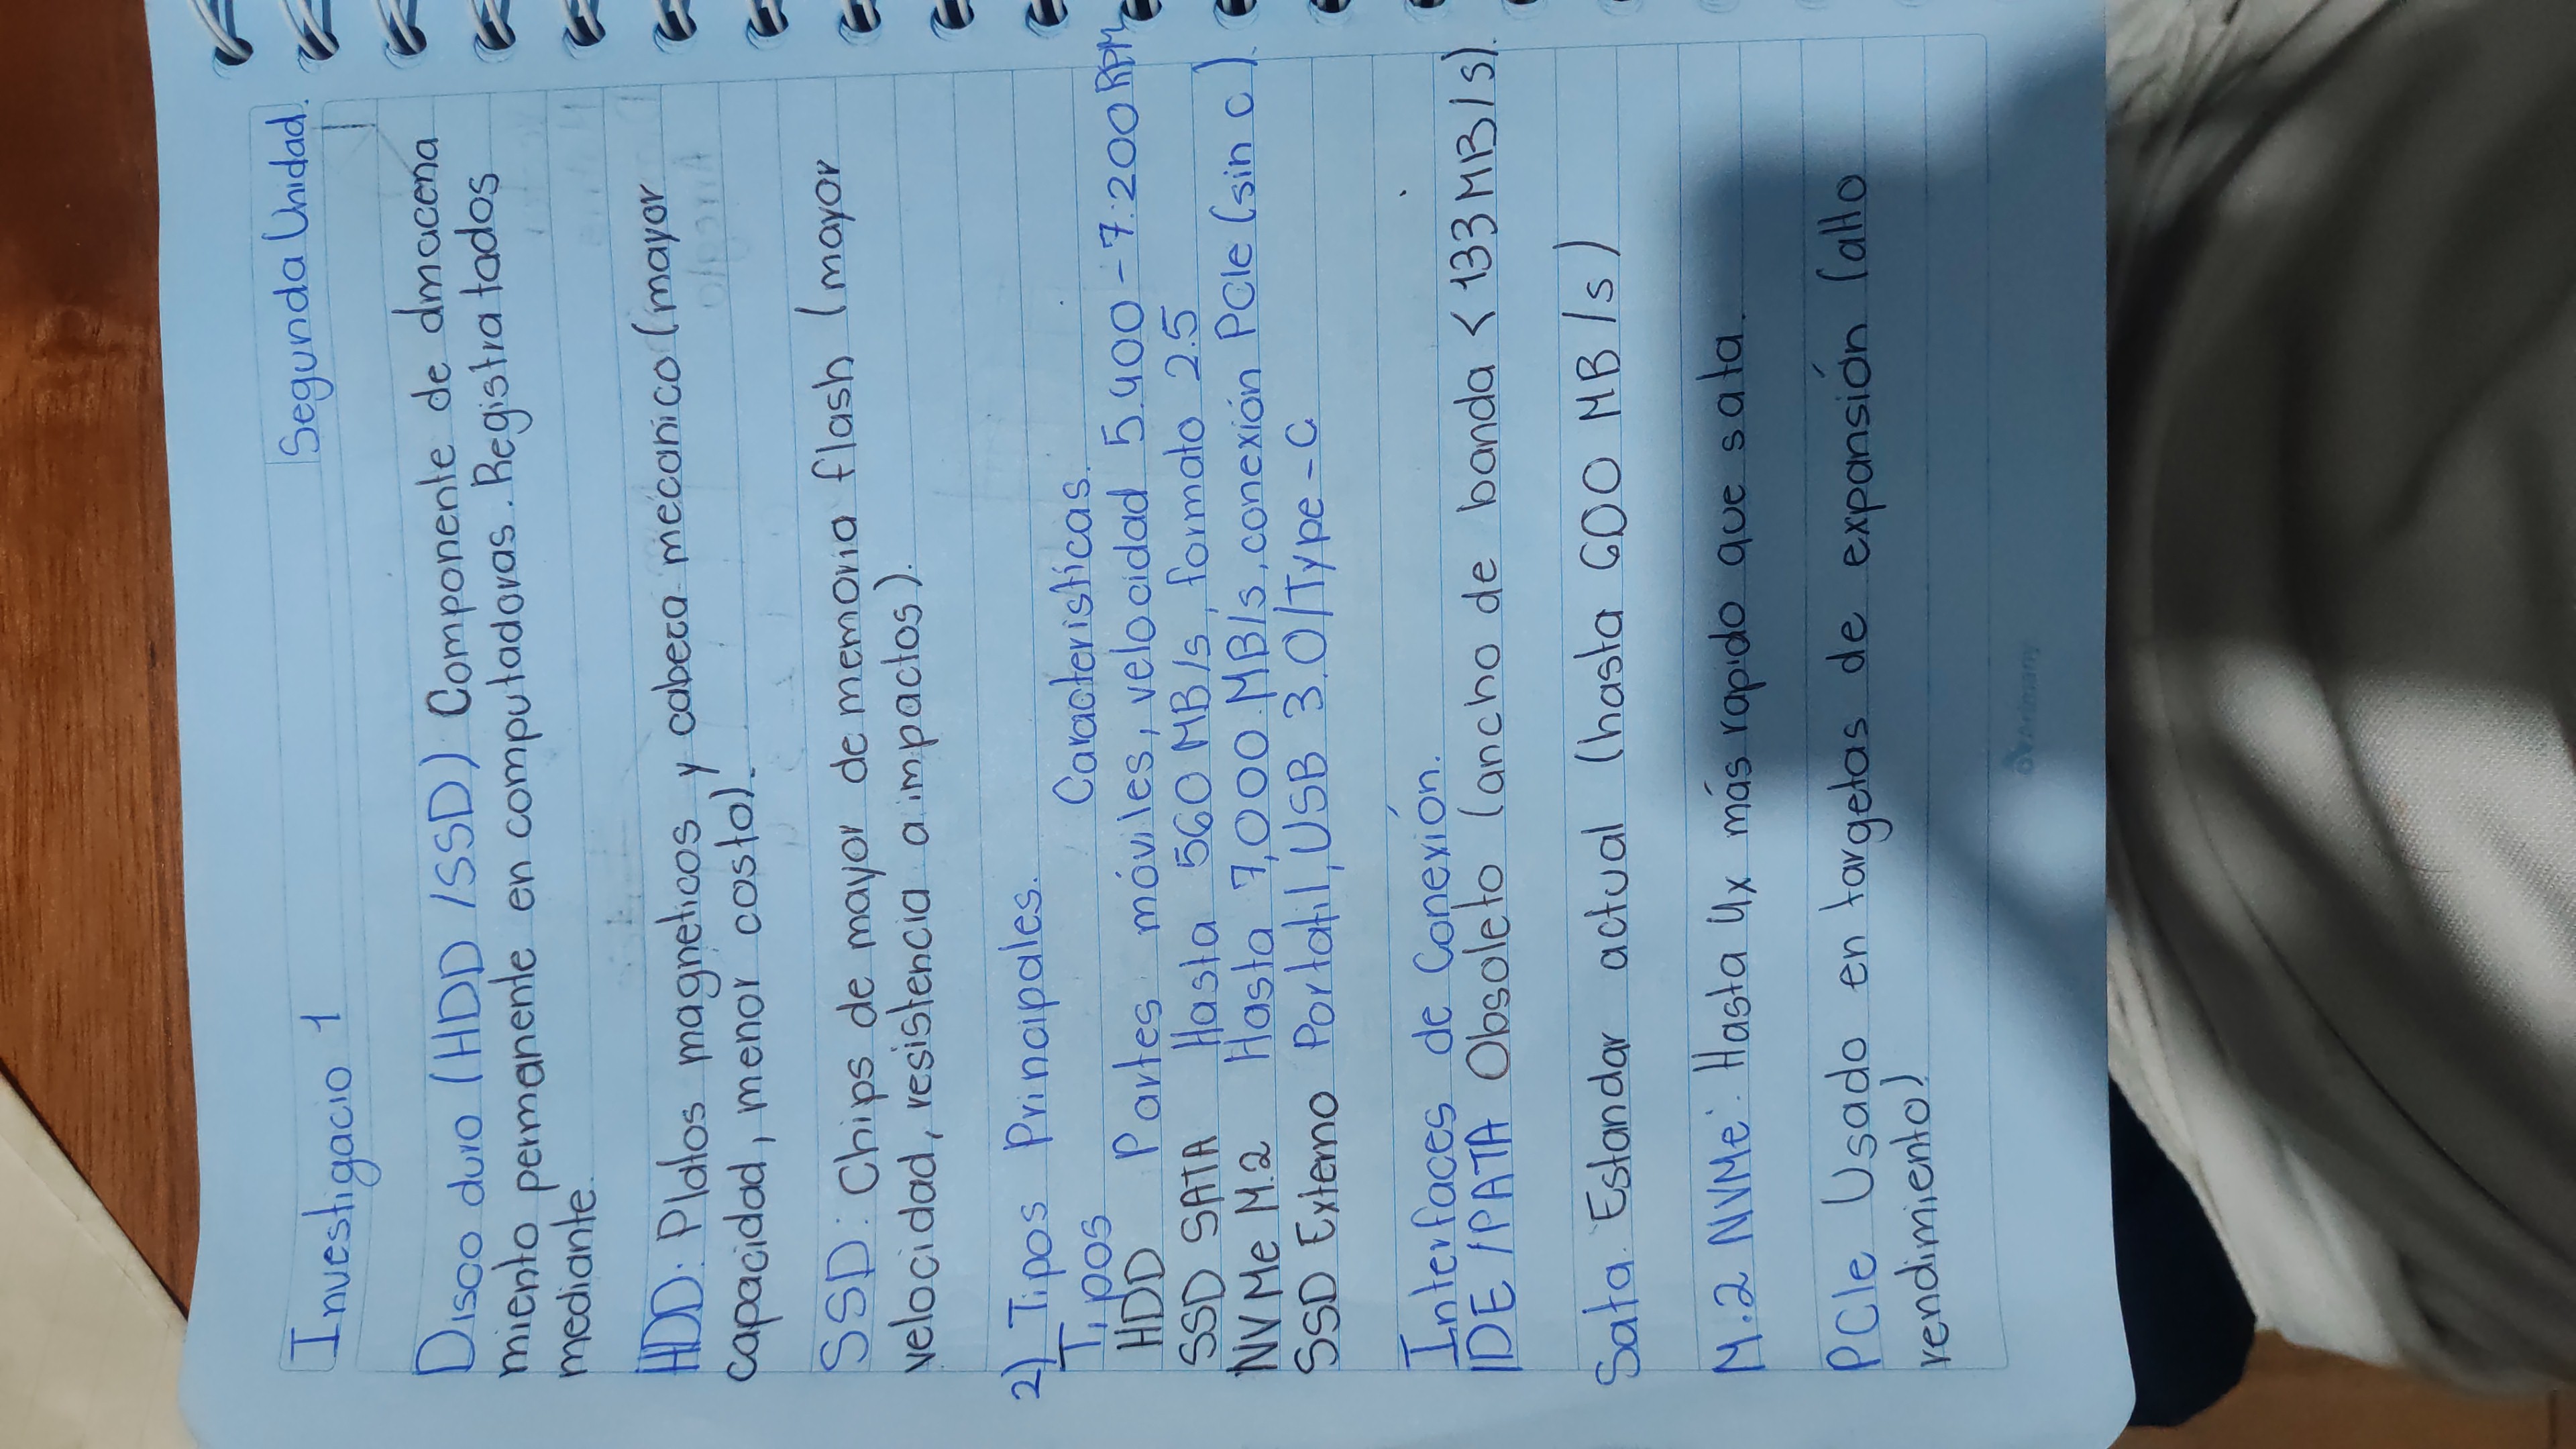 Investigacio 1 Segunda Unidad.
Disco duro (HDD /SSD) Componente de dmacena
miento permanente en computadoras. Registra tados
mediante.
HDD: Platos magneticos y cabeza mecanico (mayor
capacidad, menor costo).
SSD: Chips de mayor de memoria flash (mayor
velocidad, resistencia a impactos).
2) Tipos Principales.
Tipos Características.
HDD Partes móviles, velocidad 5.400-7.200 RPM
SSD SATA Hasta 560 MB/s, formato 2.5
NVMe M.2 Hasta 7,000 MB/s, conexión PCIe (sin c).
SSD Externo Portatil, USB 3.0/Type-C
Interfaces de Conexión.
IDE/PATA Obsoleto (ancho de banda < 133 MB/s).
Sata. Estandar actual (hasta 600 MB/s)
M.2 NVMe: Hasta 4x más rapido que sata.
PCIe Usado en targetas de expansión (alto
rendimiento)